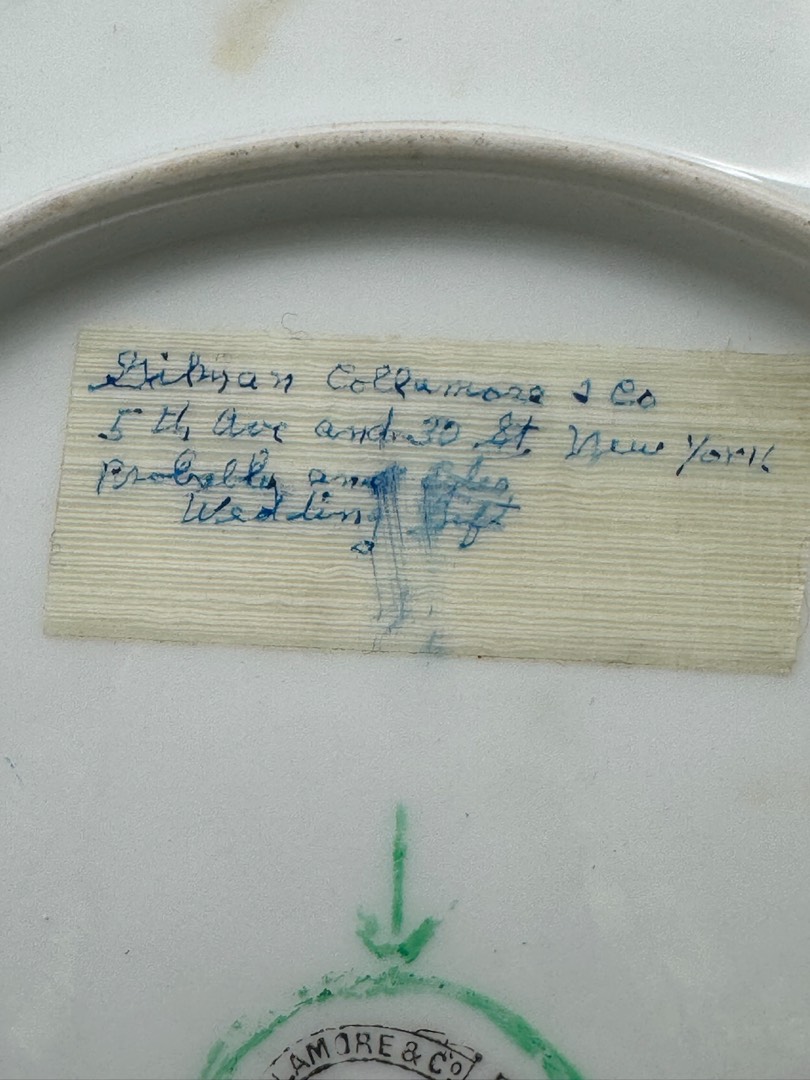 Gilman Collamore & Co
5 th Ave and 30 St. New York
Probably and
Wedding Gift
LAMORE & Co